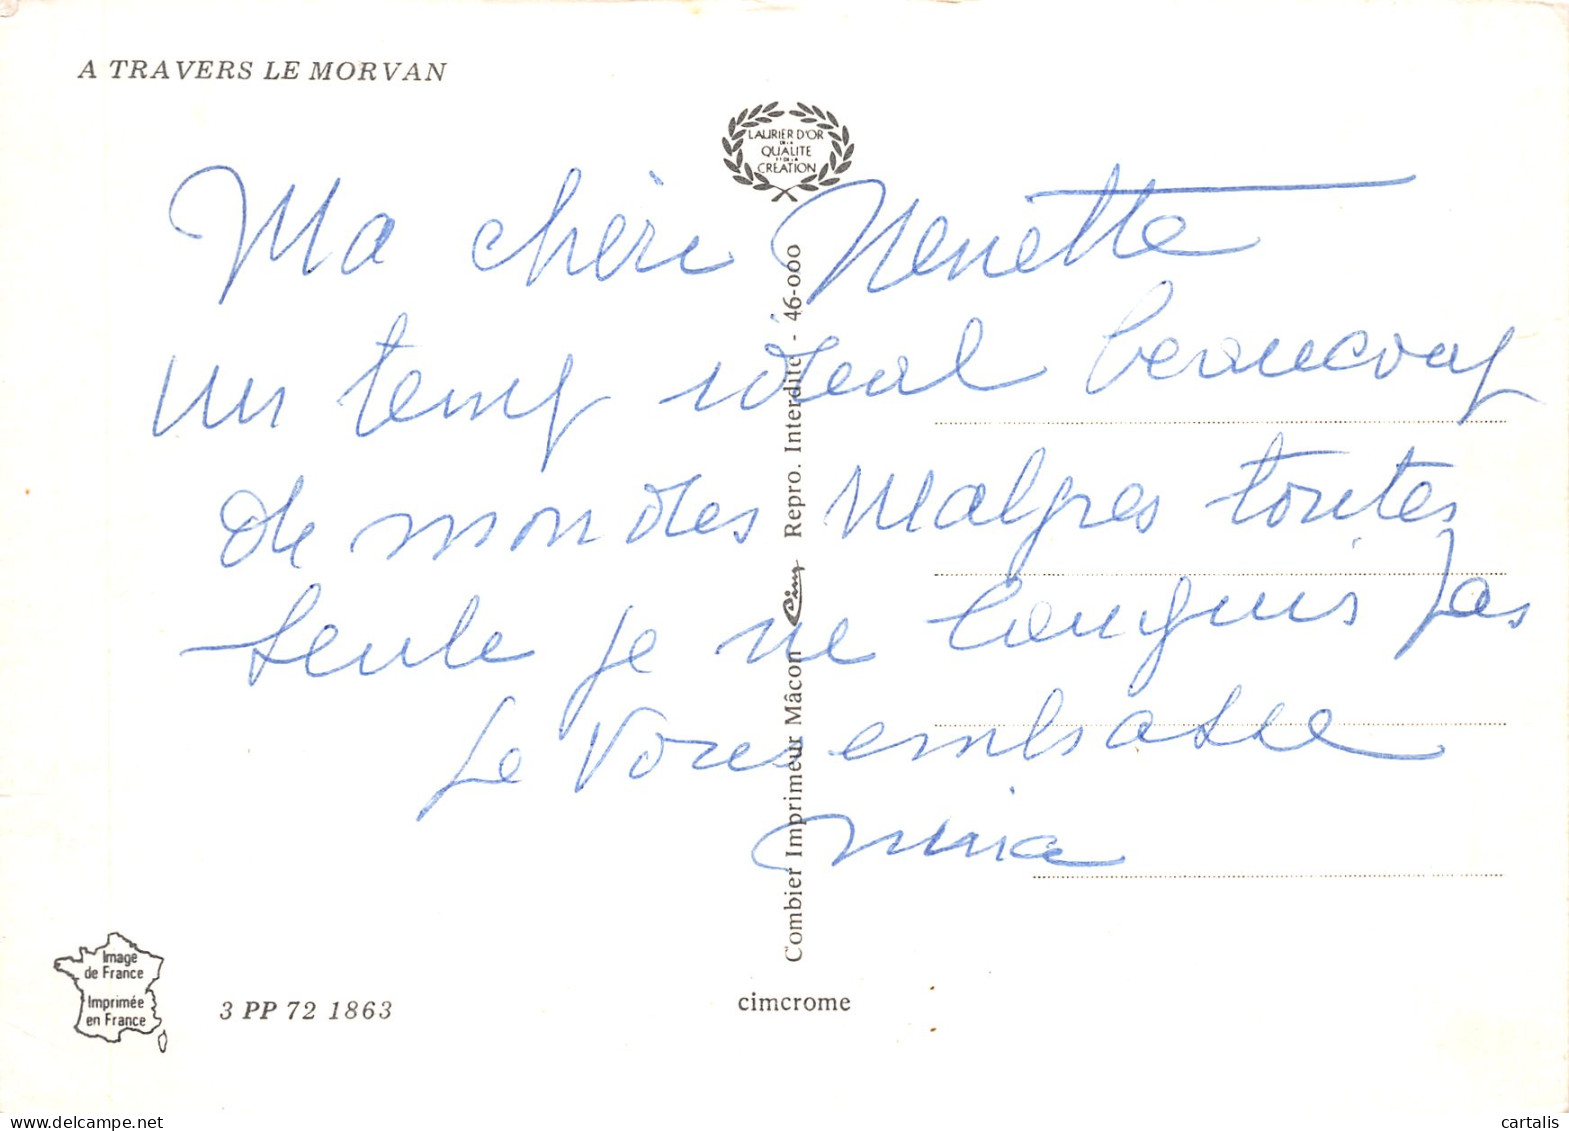 A TRAVERS LE MORVAN
LAURIER D'OR
DE LA
QUALITE
ET DE LA
CREATION
Ma chéri Nenette
un temp ideal beaucoup
de mondes malgres toutes
seule je ne languis pas
Je vous embrasse
Nina
Combier Imprimeur Mâcon Cim Repro. Interdite - 46-000
Image
de France
Imprimée
en France
3 PP 72 1863
cimcrome
cartalis